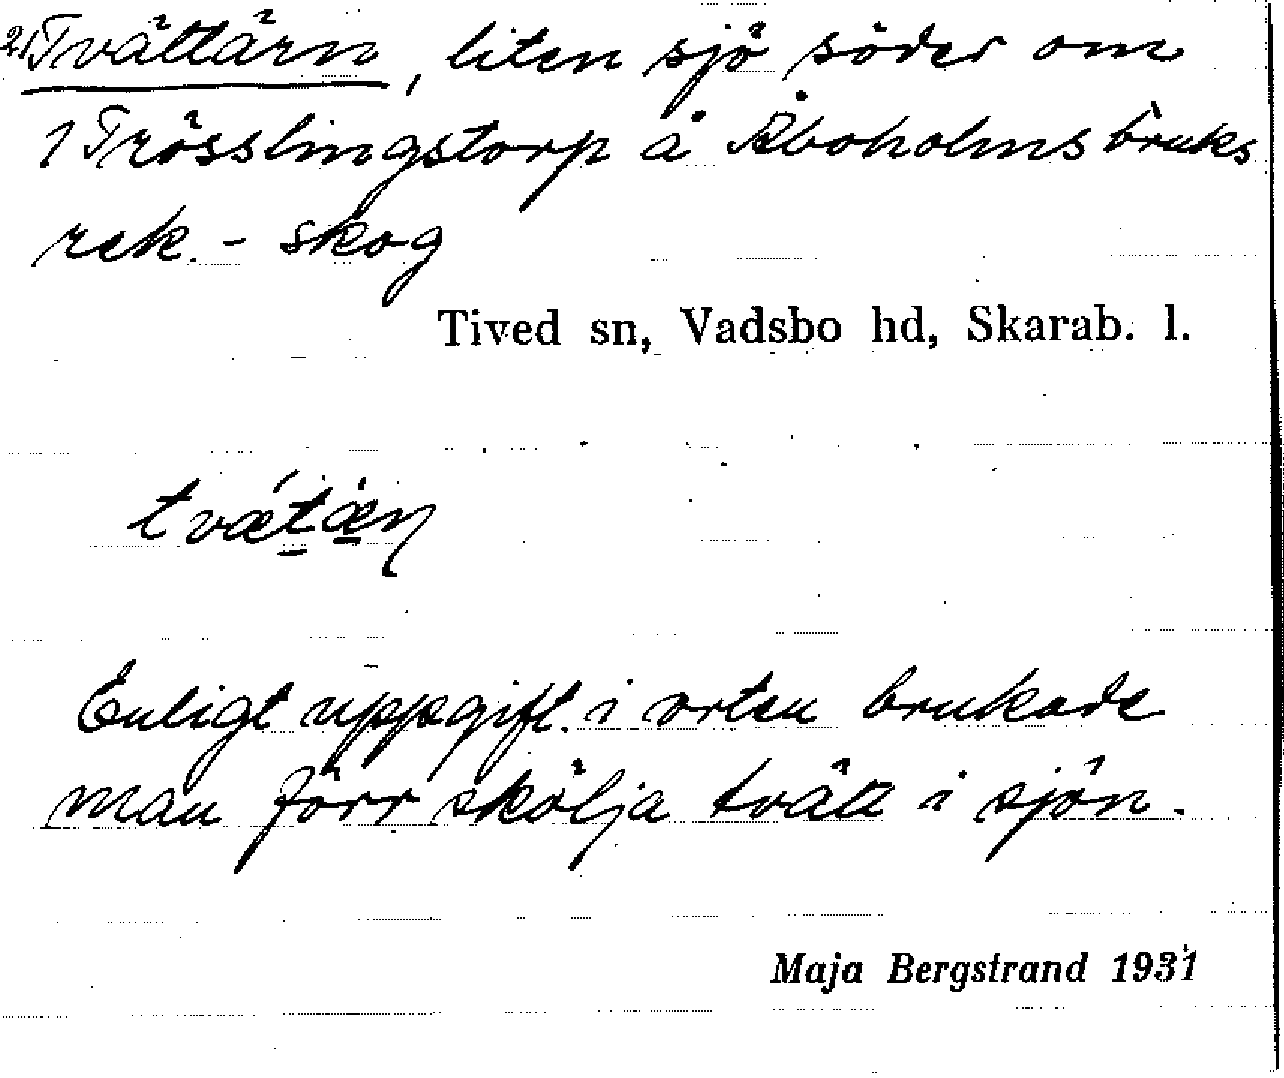 2/Tvättärn, liten sjö söder om
1 Trösslingstorp å Åboholms bruks
rek. - skog
Tived sn, Vadsbo hd, Skarab. l.
Enligt uppgift i orten brukade
man förr skölja tvätt i sjön.
Maja Bergstrand 1931